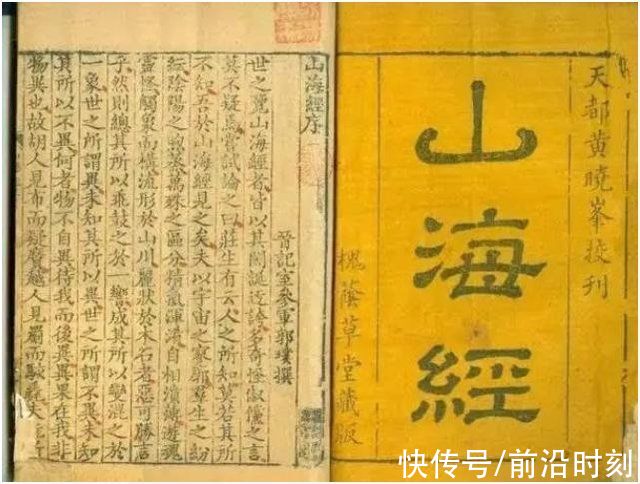 天都黄曉峯挍刊
山海經
槐蔭草堂藏版
山海經序
晉記室參軍郭璞撰
世之覽山海經者皆以其閎誕迂誇多奇怪俶儻之言
莫不疑焉嘗試論之曰莊生有云人之所知莫若其所
不知吾於山海經見之矣夫以宇宙之寥廓群生之紛
紜陰陽之煦蒸萬殊之區分精氣渾淆自相濆薄遊魂
靈怪觸象而構流形於山川麗狀於木石者惡可勝言
乎然則總其所以乖鼓之於一響成其所以變混之於
一象世之所謂異未知其所以異世之所謂不異未知
其所以不異何者物不自異待我而後異異果在我非
物異也故胡人見布而疑黂越人見罽而駭毳夫
快传号/前沿时刻